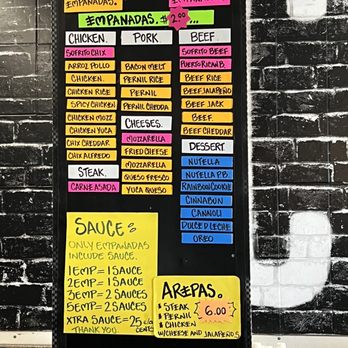 EMPANADAS. $2.00
CHICKEN.
SOFRITO CHIX
ARROZ POLLO
CHICKEN.
CHICKEN RICE
SPICY CHICKEN
CHICKEN MOZZ
CHICKEN YUCA
CHIX CHEDDAR
CHIX ALFREDO
STEAK.
CARNE ASADA
PORK
BACON MELT
PERNIL RICE
PERNIL
PERNIL CHEDDA
CHEESES.
MOZZARELLA
FRIED CHEESE
MOZZARELLA
QUESO FRESCO
YUCA QUESO
BEEF
SOFRITO BEEF
PUERTO RICAN B.
BEEF RICE
BEEF JALAPEÑO
BEEF JACK
BEEF.
BEEF CHEDDAR
DESSERT
NUTELLA
NUTELLA P.B.
RAINBOW COOKIE
CINNABUN
CANNOLI
DULCE D LECHE
OREO
SAUCES
ONLY EMPANADAS
INCLUDE SAUCE.
1 EMP = 1 SAUCE
2 EMP = 1 SAUCE
3 EMP = 2 SAUCES
5 EMP = 2 SAUCES
XTRA SAUCE = 25 CENTS
THANK YOU
AREPAS.
$ STEAK
$ PERNIL
$ CHICKEN
6.00
W/CHEESE AND JALAPEÑOS